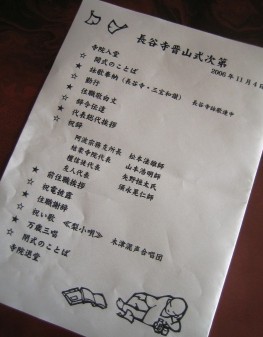 長谷寺晋山式次第
2006年11月4日
寺院入堂
★ 開式のことば
★ 詠歌奉納（長谷寺・三宝和讃） 長谷寺詠歌連中
★ 勤行
★ 住職敬白文
★ 辞令伝達
★ 代表総代挨拶
★ 祝辞
阿波宗務支所長 松本法敬師
結衆寺院代表 山本浩明師
檀信徒代表 矢野恒太氏
友人代表 須永晃仁師
★ 前住職挨拶
★ 祝電披露
★ 住職謝辞
★ 祝い歌 ≪梨小唄≫ 木津混声合唱団
★ 万歳三唱
★ 閉式のことば
寺院退堂